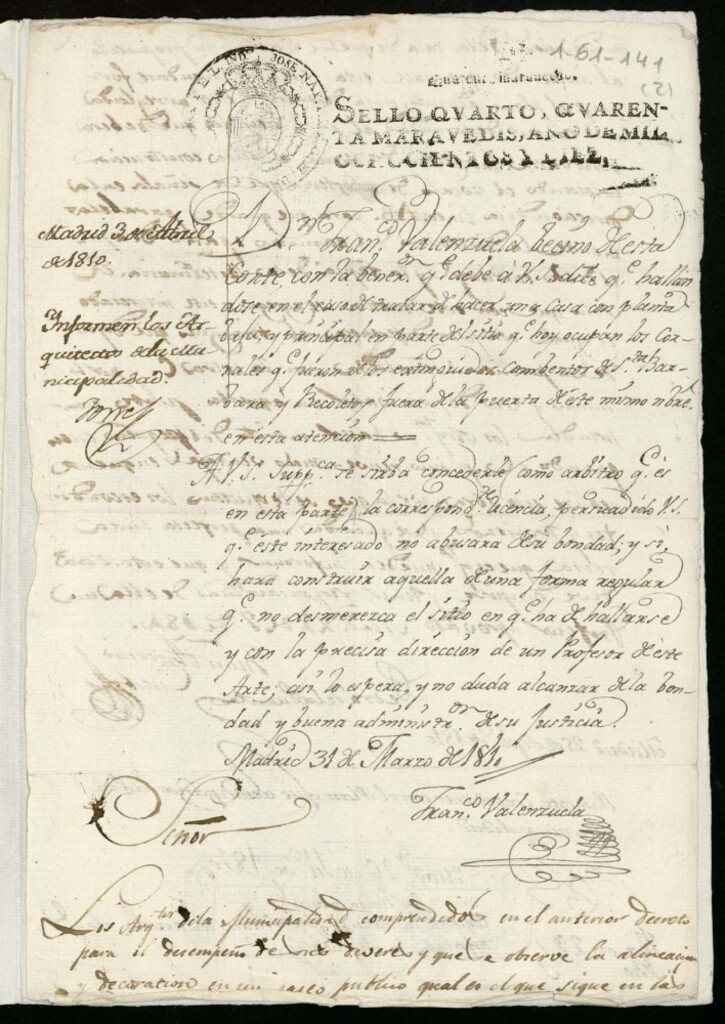 1-61-141
(2)
Quarenta maravedis.
SELLO QVARTO, QVAREN-
TA MARAVEDIS, AÑO DE MIL
OCHOCIENTOS Y DIEZ,
JOSE NAP
IND
Madrid 3 de Abril
de 1810.
Informen los Ar-
quitectos de la Mu-
nicipalidad.
Torres
Dn. Franco. Valenzuela becino de esta
Corte, con la benen.on q.e debe à V.S. dice q.e hallan
dose en el caso de tratar de hacer una casa con planta
baja, y principal en parte del sitio q.e hoy ocupan los Cor-
rales q.e fueron de los extinguidos combentos de Sta. Bar-
bara y Recoletos fuera de la puerta de éste mismo nbre.
en esta atencion
A V.S. supp.ca se sirba concederle (como arbitro q.e es
en esta parte) la correspond.te licencia, persuadido V.S.
q.e éste interesado no abusara de su bondad; y si,
hara construir aquella de una forma regular
q.e no desmerezca el sitio en q.e ha de hallarse
y con la precisa dirección de un Profesor de éste
Arte; asi lo espera, y no duda alcanzar de la bon-
dad y buena administr.on de su Justicia.
Madrid 31 de Marzo de 1810
Franco. Valenzuela
Señor
Los Arq.tos de la Municipalidad comprendidos en el anterior decreto
para el desempeño de sus deveres y que se observe la alineacion
y decoracion en un paseo publico qual es el que sigue en las